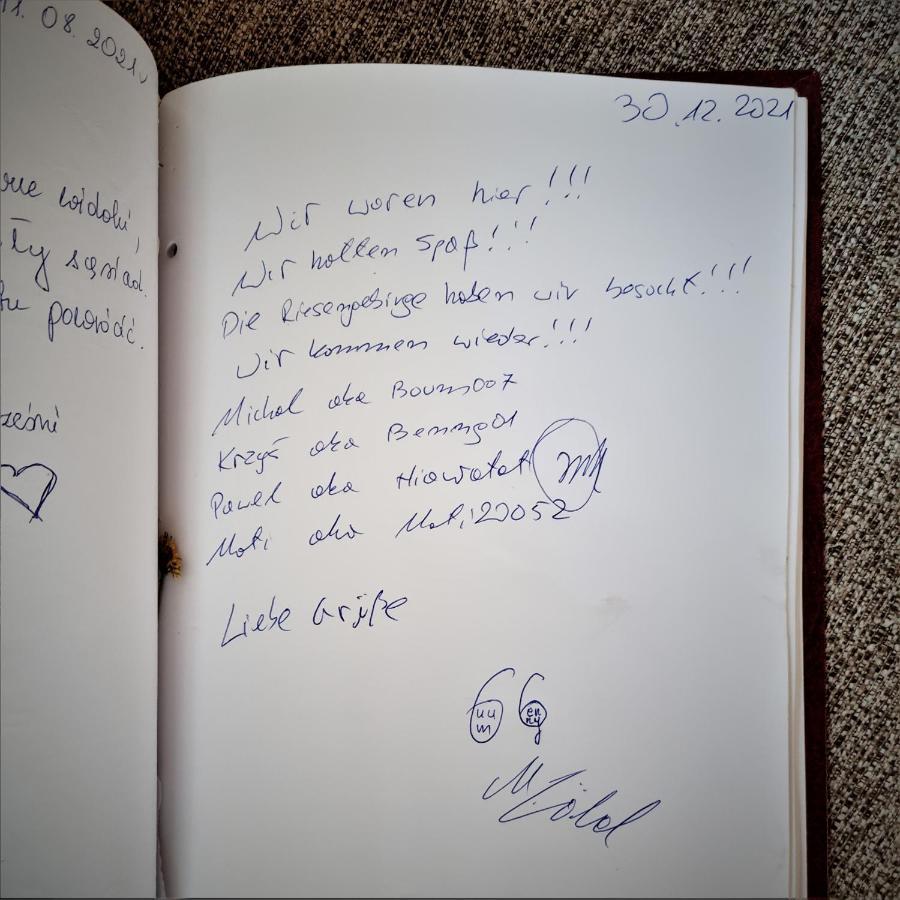 11. 08. 2021
widoki,
sąsiad.
powrócić.
30.12.2021
Wir waren hier!!!
Wir hatten Spaß!!!
Die Riesengebirge haben wir besucht!!!
Wir kommen wieder!!!
Michal aka
Krzyś aka Benny01
Pawel aka Hiawatat
Mati aka Mati20052
Liebe Grüße